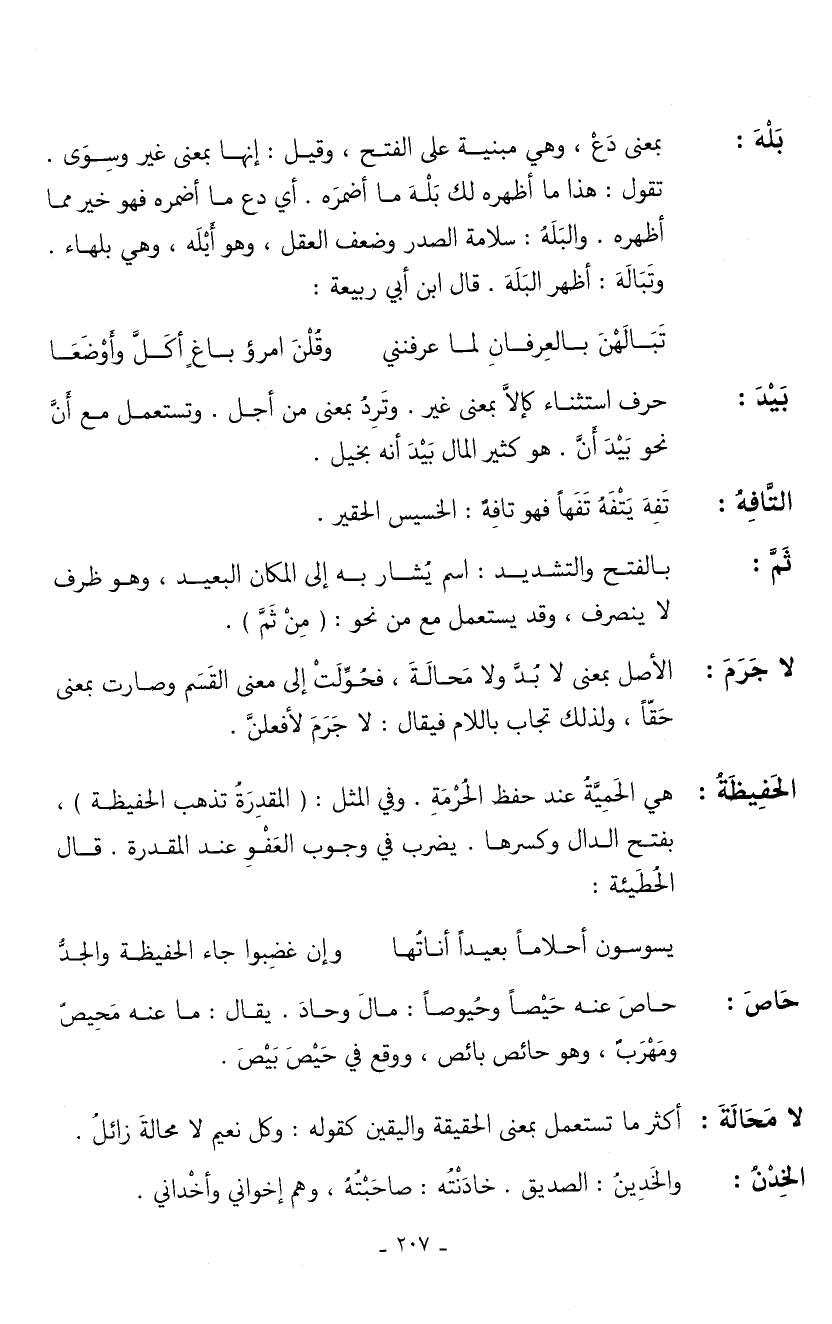 بَلْهَ : بمعنى دَعْ ، وهي مبنية على الفتح ، وقيل : إنها بمعنى غير وسِوَى .
تقول : هذا ما أظهره لك بَلْهَ ما أضمرَه . أي دع ما أضمره فهو خير مما
أظهره . والبَلَهُ : سلامة الصدر وضعف العقل ، وهو أَبْلَه ، وهي بلهاء .
وتَبَالَهَ : أظهر البَلَهَ . قال ابن أبي ربيعة :
تَبَالَهْنَ بالعِرفانِ لما عرفنني وقُلْنَ امرؤ باغٍ أكَلَّ وأَوْضَعَا
بَيْدَ : حرف استثناء كإلاَّ بمعنى غير . وتَرِدُ بمعنى من أجل . وتستعمل مع أنَّ
نحو بَيْدَ أنَّ . هو كثير المال بَيْدَ أنه بخيل .
التَّافِهُ : تَفِهَ يَتْفَهُ تَفَهاً فهو تافهٌ : الخسيس الحقير .
ثَمَّ : بالفتح والتشديد : اسم يُشار به إلى المكان البعيد ، وهو ظرف
لا ينصرف ، وقد يستعمل مع من نحو : ( مِنْ ثَمَّ ) .
لا جَرَمَ : الأصل بمعنى لا بُدَّ ولا مَحالَةَ ، فحُوِّلَتْ إلى معنى القَسَم وصارت بمعنى
حَقّاً ، ولذلك تجاب باللام فيقال : لا جَرَمَ لأفعلنَّ .
الحَفِيظَةُ : هي الحَمِيَّةُ عند حفظ الحُرْمَةِ . وفي المثل : ( المقدِرَةُ تذهب الحفيظة ) ،
بفتح الدال وكسرها . يضرب في وجوب العَفْوِ عند المقدرة . قال
الحُطَيئة :
يسوسون أحلاماً بعيداً أناتُها وإن غضِبوا جاء الحفيظة والجدُّ
حَاصَ : حاصَ عنه حَيْصاً وحُيوصاً : مالَ وحادَ . يقال : ما عنه مَحِيصٌ
ومَهْرَبٌ ، وهو حائص بائص ، ووقع في حَيْصَ بَيْصَ .
لا مَحَالَةَ : أكثر ما تستعمل بمعنى الحقيقة واليقين كقوله : وكل نعيم لا محالةَ زائلُ .
الخِدْنُ : والخَدِينُ : الصديق . خادَنْتُه : صاحَبْتُهُ ، وهم إخواني وأخْداني .
- ٢٠٧ -